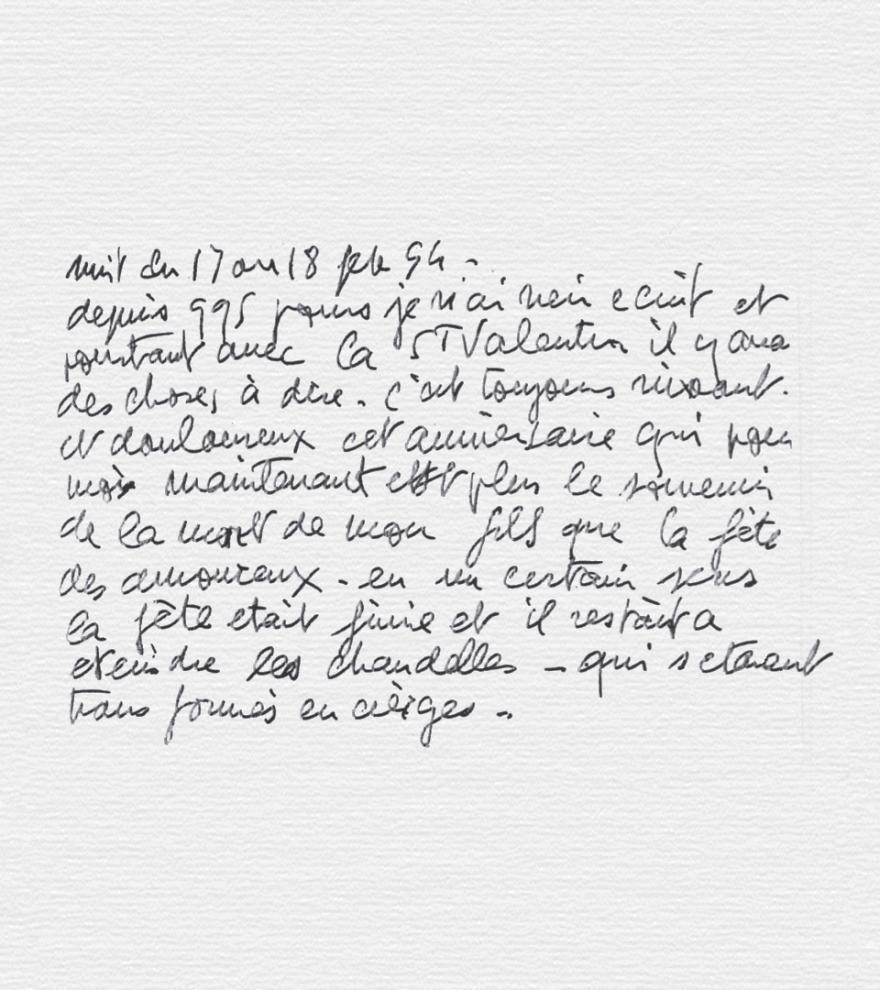 nuit du 17 au 18 feb 94 -
depuis qqs jours je n'ai rien ecrit et
pourtant avec la ST Valentin il y aura
des choses à dire. c'est toujours vivant.
et douloureux cet anniversaire qui pour
moi maintenant est plus le souvenir
de la mort de mon fils que la fête
des amoureux - en un certain sens
la fête etait finie et il restait a
eteindre les chandelles - qui s etaient
transformés en cièrges -